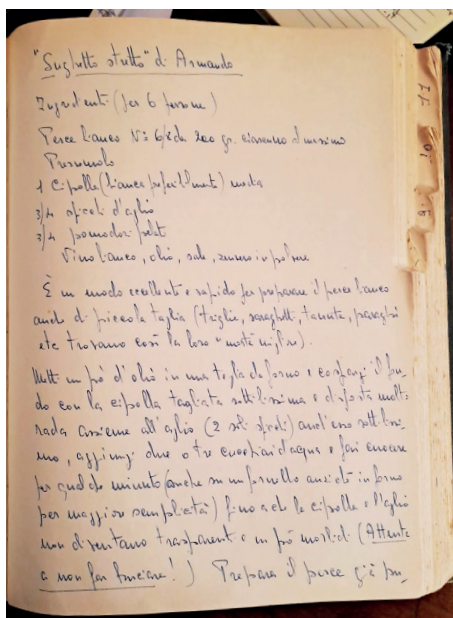 "Sughetto stretto" di Armando
Ingredienti (per 6 persone)
Pesce bianco N° 6/8 da 200 gr. ciascuno al massimo
Prezzemolo
1 Cipolla (bianca preferibilmente) media
3/4 spicchi d'aglio
3/4 pomodori pelati
Vino bianco, olio, sale, zenzero in polvere
È un modo eccellente e rapido per preparare il pesce bianco
anche di piccola taglia (triglie, saraghetti, tanute, paraghi
etc trovano così la loro "morte migliore).
Metti un pò d'olio in una teglia da forno e cospargi il fon-
do con la cipolla tagliata sottilissima e disposta molto
rada assieme all'aglio (2 soli spicchi) anch'esso sottilissi-
mo, aggiungi due o tre cucchiai d'acqua e fai cuocere
per qualche minuto (anche su un fornello anziché in forno
per maggior semplicità) fino a che la cipolla e l'aglio
non diventano trasparenti e un pò morbidi (Attenta
a non far bruciare!) Prepara il pesce già pu-